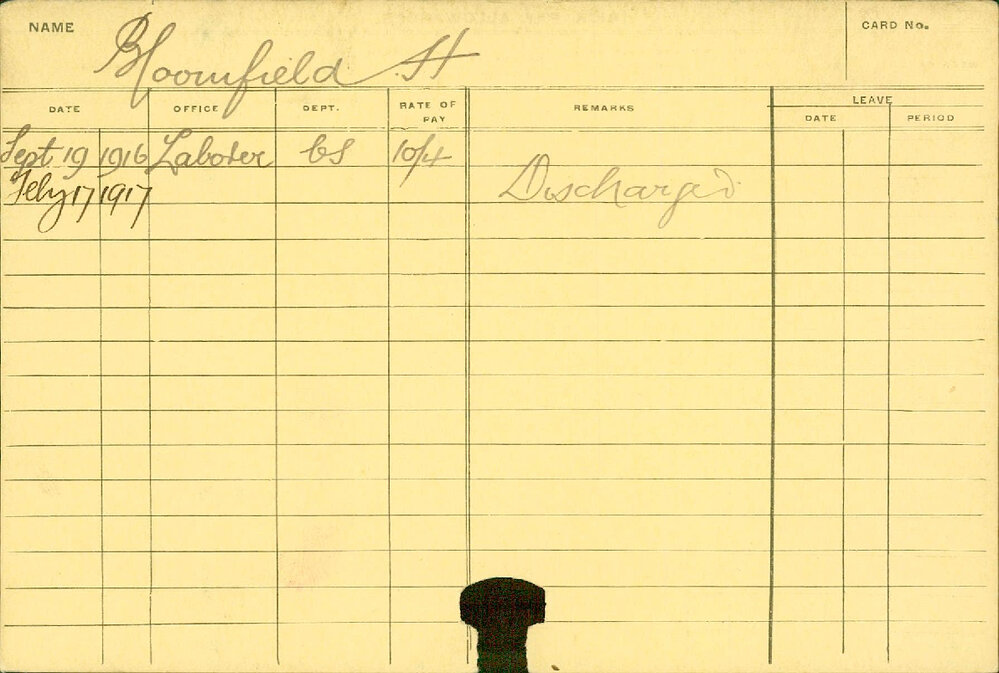 NAME Bloomfield H CARD No.
DATE OFFICE DEPT. RATE OF PAY REMARKS LEAVE
DATE PERIOD
Sept 19 1916 Laborer CS 10/4
Feby 17 1917 Discharged